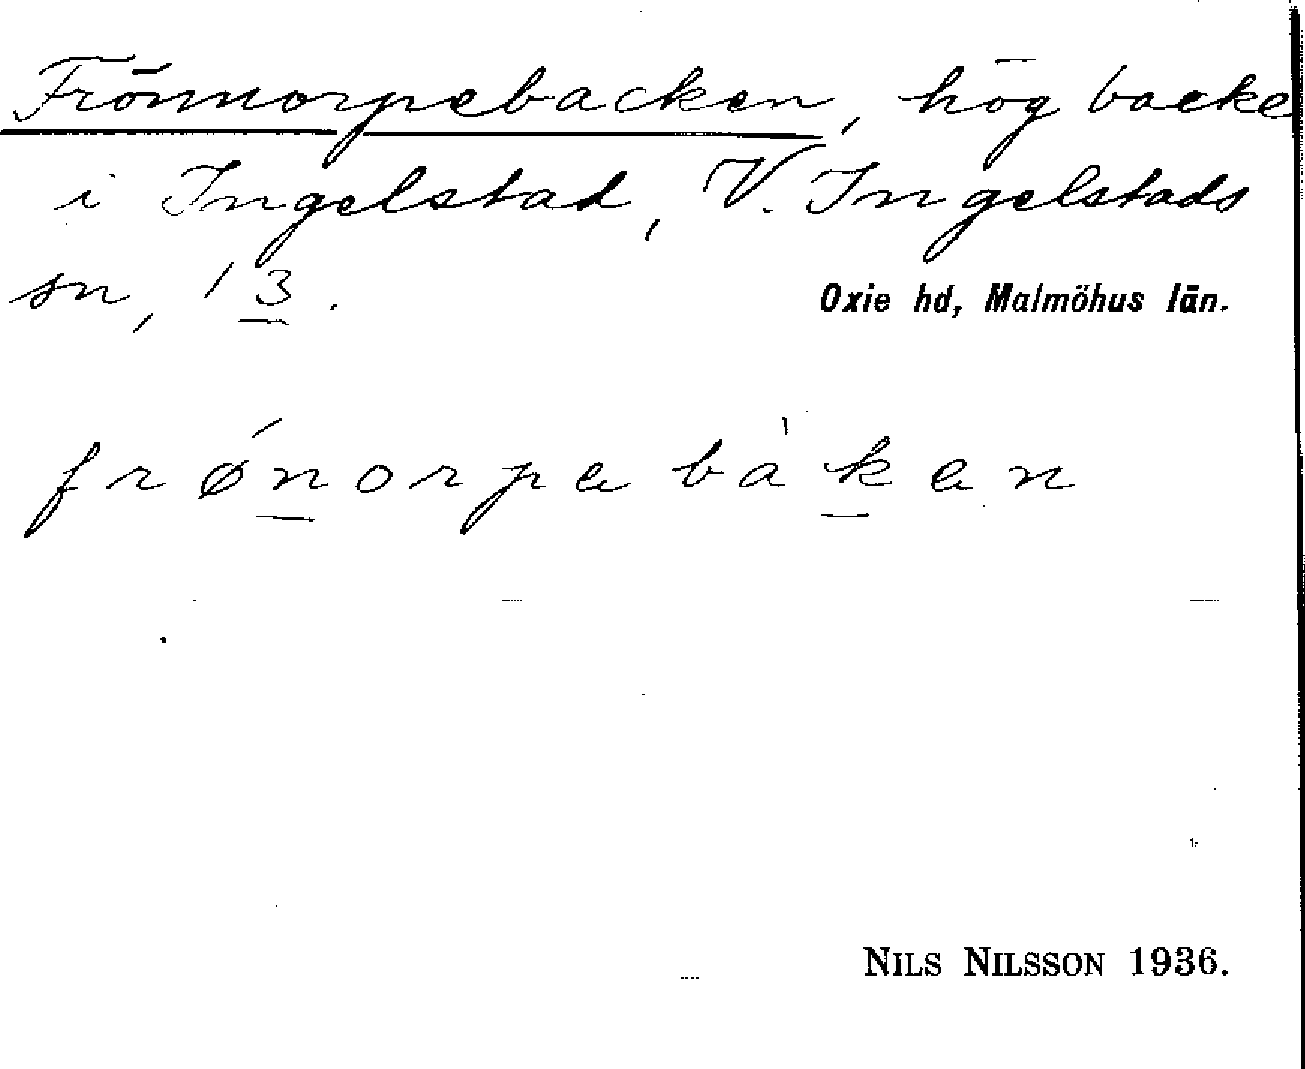 Frönnorpebacken, hög backe
i Ingelstad, V. Ingelstads
sn, 13.
Oxie hd, Malmöhus län.
frǿnorpa bàkan
NILS NILSSON 1936.